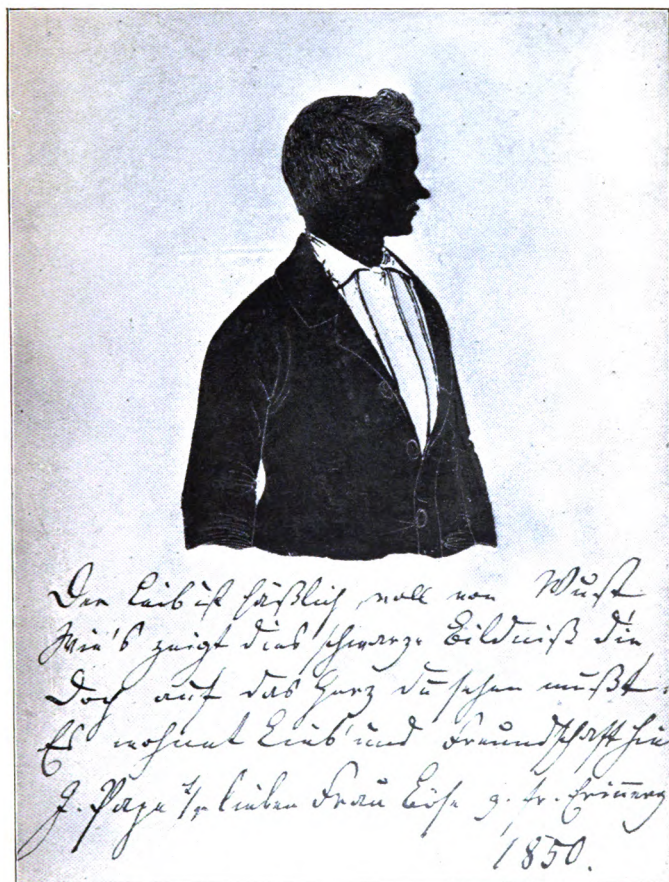 Der Leib ist häßlich, voll von Wust
Wie's zeigt dies schwarze Bildniß die
Doch auf das Herz du sehen mußt.
Es wohnet Lieb' und Freundschaft hie
J. Pape lieben Frau z. fr. Erinnerg
1850.